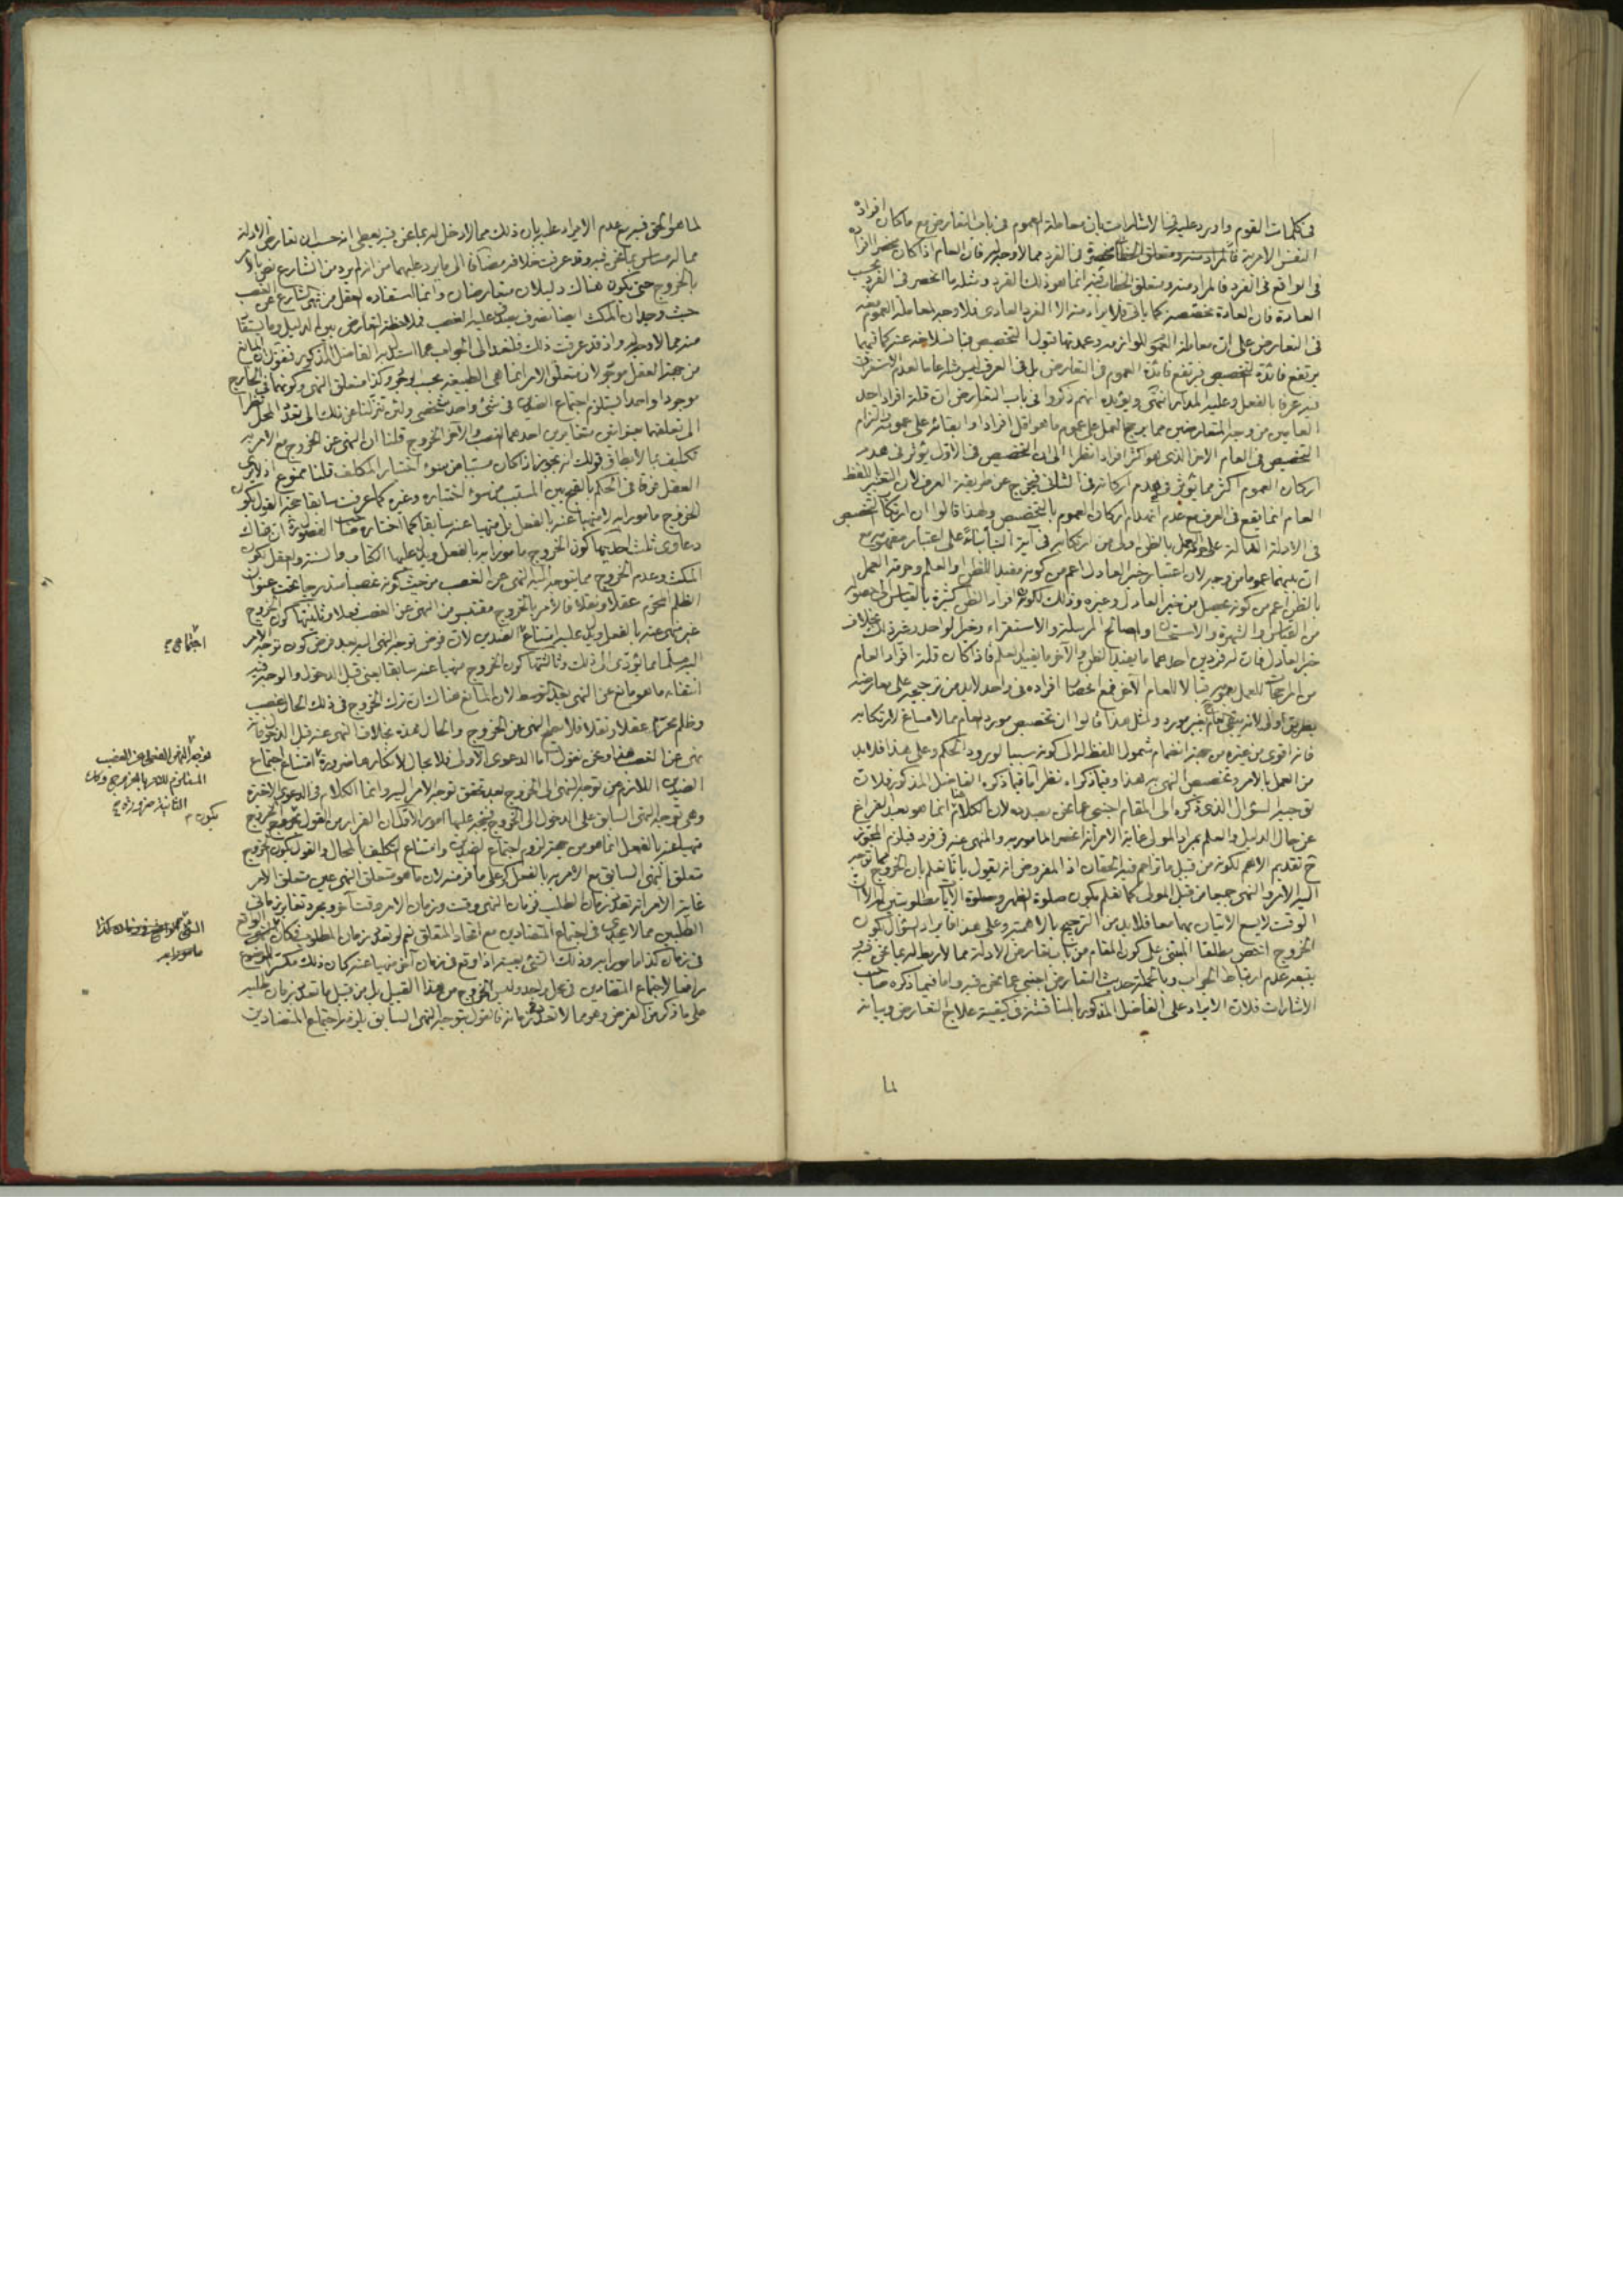 في كلمات القوم واورد عليه في الاشارات بان معاملة العموم في باب التعارض مع ما كان افراده
النفس الامرية فالمراد منه ومتعلق الخطاب منحصرة في الفرد مما لا وجه له فان العام اذا كان منحصر الافراد
في الواقع في الفرد فالمراد منه ومتعلق الخطاب فيه انما هو ذلك الفرد ومثله ما انحصر في الفرد بحسب
العادة فان العادة مخصصة كما ياتي فلا يراد منه الا الفرد العادي فلا وجه لمعاملة العموم معه
في التعارض على ان معاملة العموم للوازمه وعمدتها قبول التخصيص فبانسلاخه عنه كما فيهما
يرتفع فائدة التخصيص فيرتفع فائدة العموم في التعارض بل في العرف ليس مثله عاما لعدم الاستغراق
فيه عرفا بالفعل وعليه المدار انتهى ويؤيده انهم ذكروا في باب التعارض ان قلة افراد احد
العامين من وجه المتعارضين مما يرجح العمل على عموم ما هو اقل افرادا وابقائه على عمومه والتزام
التخصيص في العام الاخر الذي هو اكثر افرادا نظرا الى ان التخصيص في الاول يؤثر في هدم
اركان العموم اكثر مما يؤثر في هدم اركانه في الثاني فيخرج عن طريقة العرف لان التعبير باللفظ
العام انما يقع في العرف مع عدم انهدام اركان العموم بالتخصيص ولهذا قالوا ان ارتكاب التخصيص
في الادلة الدالة على حرمة العمل بالظن اولى من ارتكابه في آية النبأ بناءً على اعتبار مفهومها مع
ان بينهما عموما من وجه لان اعتبار خبر العادل اعم من كونه مفيدا للظن او العلم وحرمة العمل
بالظن اعم من كونه يحصل من خبر العادل وغيره وذلك لكون افراد الظن كثيرة بالقياس الى حصوله
من القياس والشهرة والاستحسان والمصالح المرسلة والاستقراء وخبر الواحد وغير ذلك بخلاف
خبر العادل فان له فردين احدهما ما يفيد الظن والآخر ما يفيد العلم فاذا كان قلة افراد العام
من المرجحات للعمل بعمومه قبالا للعام الآخر فمع انحصار افراده في واحد لا بد من ترجيحه على معارضه
بطريق اولى لانه يبقى العام بغير مورد ولمثل هذا قالوا ان تخصيص مورد العام مما لا مساغ لارتكابه
فانه اقوى من غيره من جهة انضمام شمول اللفظ له الى كونه سببا لورود الحكم وعلى هذا فلا بد
من العمل بالامر وتخصيص النهي به هذا وفيما ذكراه نظر اما فيما ذكره الفاضل المذكور فلان
توجيه السؤال الذي ذكره الى المقام اجنبي عما نحن بصدده لان الكلام هنا انما هو بعد الفراغ
عن حال الدليل والعلم بمراد المولى غاية الامر انه انحصر المامور به والمنهي عنه في فرد فيلزم المجوز
ح تقديم الاهم لكونه من قبيل ما تزاحم فيه الحقان اذ المفروض انه يقول بانا نعلم بان الخروج مما توجه
اليه الامر والنهي جميعا من قبل المولى كما نعلم بكون صلوة الظهر وصلوة الآيات مطلوبتين له الا ان
الوقت لا يسع الاتيان بهما معا فلا بد من الترجيح بالاهمية وعلى هذا فايراد السؤال بكون
الخروج اخص مطلقا المبني على كون المقام من باب تعارض الادلة مما لا ربط له بما نحن فيه
يتبعه عدم ارتباط الجواب وبالجملة حديث التعارض اجنبي عما نحن فيه واما فيما ذكره صاحب
الاشارات فلان الايراد على الفاضل المذكور بالمناقشة في كيفية علاج التعارض وبيان
لما
لما هو الحق فيه مع عدم الايراد عليه بان ذلك مما لا دخل له بما نحن فيه يعطي انه حسب ان تعارض الادلة
مما له مساس بما نحن فيه وقد عرفت خلافه مضافا الى ما يرد عليهما من انه لم يرد من الشارع نص بالامر
بالخروج حتى يكون هناك دليلان متعارضان وانما استفاده العقل من نهي الشارع عن الغصب
حيث وجد ان المكث ايضا تصرف يصدق عليه الغصب فملاحظة التعارض بين الدليل وما يستفاد
منه مما لا وجه له واذ قد عرفت ذلك فلنعد الى الجواب عما استدل به الفاضل المذكور فنقول ان المانع
من جهة العقل موجود لان متعلق الامر انما هي الطبيعة بحسب الوجود وكذا متعلق النهي وكونهما في الخارج
موجودا واحدا يستلزم اجتماع الضدين في شيء واحد شخصي ولئن تنزلنا عن ذلك الى تعدد المحل نظرا
الى تعلقهما بعنوانين متغايرين احدهما الغصب والآخر الخروج قلنا ان النهي عن الخروج مع الامر به
تكليف بما لا يطاق قولك انه يجوز اذا كان مسببا من سوء اختيار المكلف قلنا ممنوع اذ لا يرى
العقل فرقا في الحكم بالقبح بين المسبب من سوء اختياره وغيره كما عرفت سابقا حجة القول بكون
الخروج مامورا به لا منهيا عنه بالفعل بل منهيا عنه سابقا كما اختاره صاحب الفصول ره ان هناك
دعاوى ثلث احديها كون الخروج مامورا به بالفعل ويدل عليها الكتاب والسنة والعقل لكون
المكث وعدم الخروج مما يتوجه اليه النهي عن الغصب من حيث كونه غصبا مندرجا تحت عنوان
الظلم المحرم عقلا ونقلا فالامر بالخروج مقتبس من النهي عن الغصب فعلا وثانيتها كون الخروج
غير منهي عنه بالفعل ويدل عليه امتناع الضدين لان فرض توجه النهي اليه بعد فرض كون توجه الامر
اليه مسلما مما يؤدي الى ذلك وثالثتها كون الخروج منهيا عنه سابقا يعني قبل الدخول والوجه فيه
انتفاء ما هو مانع عن النهي بعد التوسط لان المانع هناك ان ترك الخروج في ذلك الحال غصب
وظلم محرم عقلا ونقلا فلا يصح النهي عن الخروج والحال هذه بخلاف النهي عنه قبل الدخول فانه
نهى عن الغصب هذا ونحن نقول اما الدعوى الاولى فلا مجال لانكارها ضرورة امتناع اجتماع
الضدين اللازم من توجه النهي الى الخروج بعد تحقق توجه الامر اليه وانما الكلام في الدعوى الاخيرة
وهي توجه النهي السابق على الدخول الى الخروج فيتجه عليها امور الاول ان الفرار من القول بكون الخروج
منهيا عنه بالفعل انما هو من جهة لزوم اجتماع الضدين وامتناع التكليف بالمحال والقول بكون الخروج
متعلق النهي السابق مع الامر به بالفعل كر على ما فر منه لان ما هو متعلق النهي عين متعلق الامر
غاية الامر انه تعدد زمان الطلب فزمان النهي وقت وزمان الامر وقت آخر ومجرد تغاير زماني
الطلبين مما لا يجدي في اجتماع المتضادين مع اتحاد المتعلق نعم لو تعدد زمان المطلوب فكان
في زمان كذا مامورا به وذلك الشيء بعينه اذا وقع في زمان آخر منهيا عنه كان ذلك مكثرا للموضوع
رافعا لاجتماع المتضادين في محل واحد وليس الخروج من هذا القبيل بل من قبيل ما تعدد زمان طلبه
على ما ذكر من الفرض وهو مما لا تعدد في زمانه فالقول بتوجه النهي السابق يلزمه اجتماع المتضادين
اجتماع
توجه النهي الفعلي عن الغصب
المستلزم للامر بالخروج وكذا
الثانية ضرورة
يكون
ماموراً به